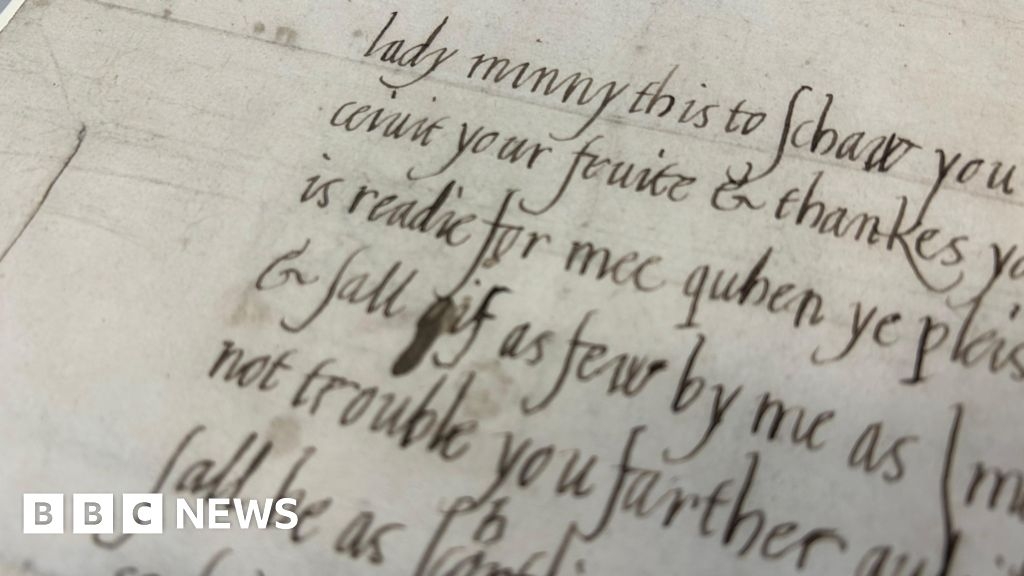 lady minny this to schaw you
ceiuit your fruite & thankes
is readie for mee quhen ye pleis
& sall gif as few by me as
not trouble you farther
sall be as
BBC NEWS